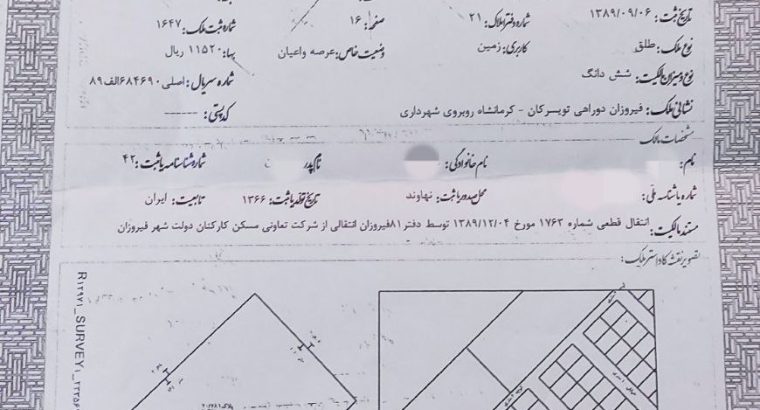 تاریخ ثبت: ۱۳۸۹/۰۹/۰۶ شماره دفتر املاک: ۲۱ صفحه: ۱۶ شماره ثبت ملک: ۱۶۴۷
نوع ملک: طلق کاربری: زمین وضعیت خاص: عرصه واعیان بهاء: ۱۱۵۲۰ ریال
نوع ومیزان مالکیت: شش دانگ شماره سریال: اصلی ۶۸۴۶۹۰الف۸۹
نشانی ملک: فیروزان دوراهی تویسرکان - کرمانشاه روبروی شهرداری کد پستی: ------
مشخصات مالک
نام: نام خانوادگی: نام پدر شماره شناسنامه یا ثبت: ۴۲
شماره یا شناسه ملی: محل صدور یا ثبت: نهاوند تاریخ تولد یا ثبت: ۱۳۶۶ تابعیت: ایران
مستند مالکیت: انتقال قطعی شماره ۱۷۶۳ مورخ ۱۳۸۹/۱۲/۰۴ توسط دفتر ۸۱فیروزان انتقالی از شرکت تعاونی مسکن کارکنان دولت شهر فیروزان
تصویر نقشه کاداستر ملک: